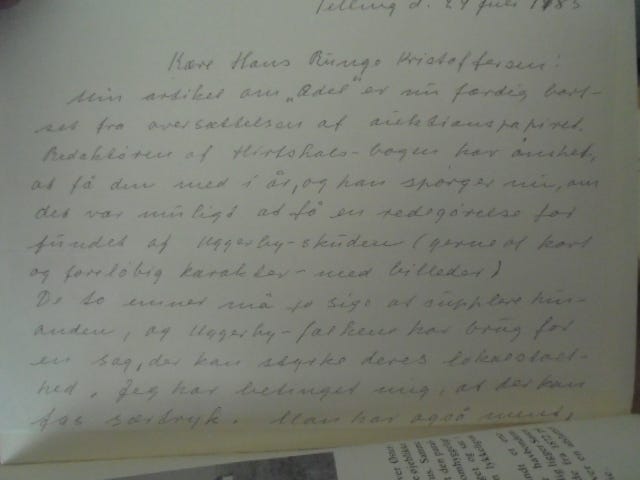 Telling d. 29 juli 1985
Kære Hans Runge Kristoffersen!
Min artikel om „Ædel" er nu færdig bort-
set fra oversættelsen af auktionspapiret.
Redaktøren af Hirtshals-bogen har ønsket,
at få den med i år, og han spørger nu, om
det var muligt at få en redegørelse for
fundet af Uggerby-skuden (gerne af kort
og foreløbig karakter - med billeder)
De to emner må jo sige at supplere hin-
anden, og Uggerby-folkene har brug for
en sag, der kan styrke deres lokalstolt-
hed. Jeg har betinget mig, at der kan
fås særtryk. Man har også ment,